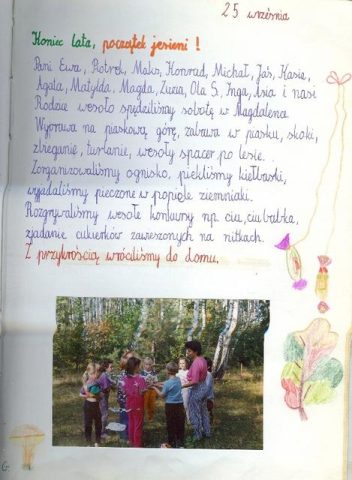 25 września
Koniec lata, początek jesieni!
Pani Ewa, Piotrek, Maks, Konrad, Michał, Jaś, Kasie,
Agata, Matylda, Magda, Zuzia, Ola S., Inga, Asia i nasi
Rodzice wesoło spędziliśmy sobotę w Magdalenie.
Wyprawa na piaskową górę, zabawa w piasku, skoki,
zbieganie, turlanie, wesoły spacer po lesie.
Zorganizowaliśmy ognisko, piekliśmy kiełbaski,
wyjadaliśmy pieczone w popiele ziemniaki.
Rozgrywaliśmy wesołe konkursy np. ciu, ciu babka,
zjadanie cukierków zawieszonych na nitkach.
Z przykrością wróciliśmy do domu.